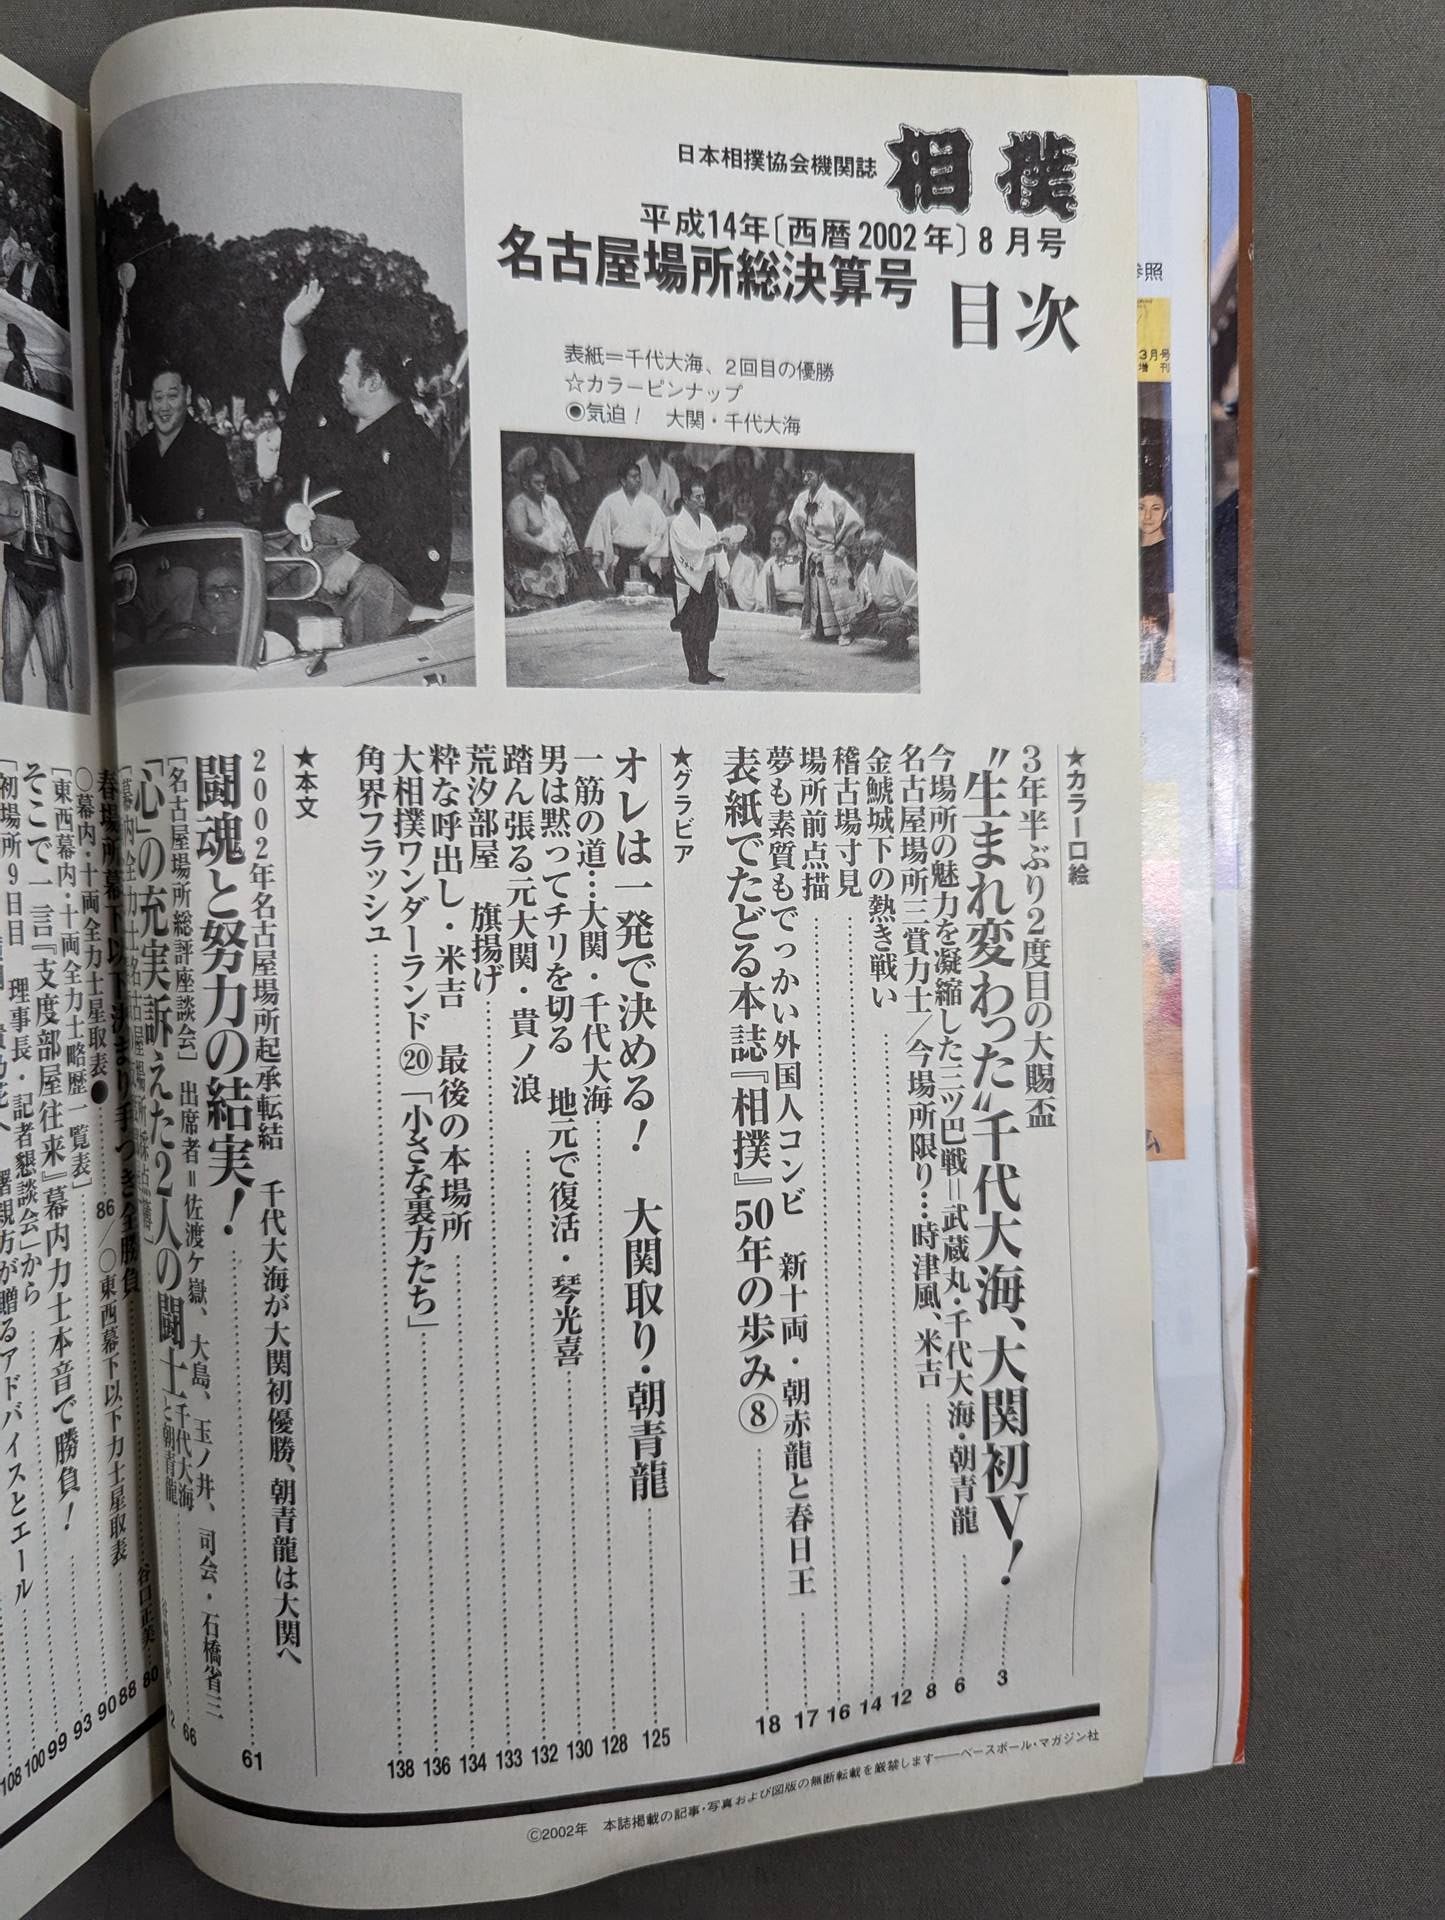 日本相撲協会機関誌 相撲
平成14年〔西暦2002年〕8月号
名古屋場所総決算号 目次
表紙＝千代大海、2回目の優勝
☆カラーピンナップ
◉気迫！ 大関・千代大海
★カラー口絵
3年半ぶり2度目の大賜盃
“生まれ変わった”千代大海、大関初V！……3
今場所の魅力を凝縮した三ツ巴戦＝武蔵丸・千代大海・朝青龍……6
名古屋場所三賞力士／今場所限り…時津風、米吉……8
金鯱城下の熱き戦い……12
稽古場寸見……14
場所前点描……16
夢も素質もでっかい外国人コンビ 新十両・朝赤龍と春日王……17
表紙でたどる本誌『相撲』50年の歩み⑧……18
★グラビア
オレは一発で決める！ 大関取り・朝青龍……125
一筋の道…大関・千代大海……128
男は黙ってチリを切る 地元で復活・琴光喜……130
踏ん張る元大関・貴ノ浪……132
荒汐部屋 旗揚げ……133
粋な呼出し・米吉 最後の本場所……134
大相撲ワンダーランド⑳「小さな裏方たち」……136
角界フラッシュ……138
★本文
2002年名古屋場所起承転結 千代大海が大関初優勝、朝青龍は大関へ
闘魂と努力の結実！……61
［名古屋場所総評座談会］ 出席者＝佐渡ケ嶽、大島、玉ノ井、司会・石橋省三
「心」の充実訴えた2人の闘士 千代大海と朝青龍……66
春場所幕下以下決まり手つき全勝負……80
谷口正美
○幕内・十両全力士星取表●……86／○東西幕下以下力士星取表……88
［東西幕内・十両全力士略歴一覧表］……90
そこで一言『支度部屋往来』幕内力士本音で勝負！……93
「初場所9日目 理事長・記者懇談会」から……99
曙親方が贈るアドバイスとエール……100
108
©2002年 本誌掲載の記事・写真および図版の無断転載を厳禁します――ベースボール・マガジン社
参照
3月号
増刊